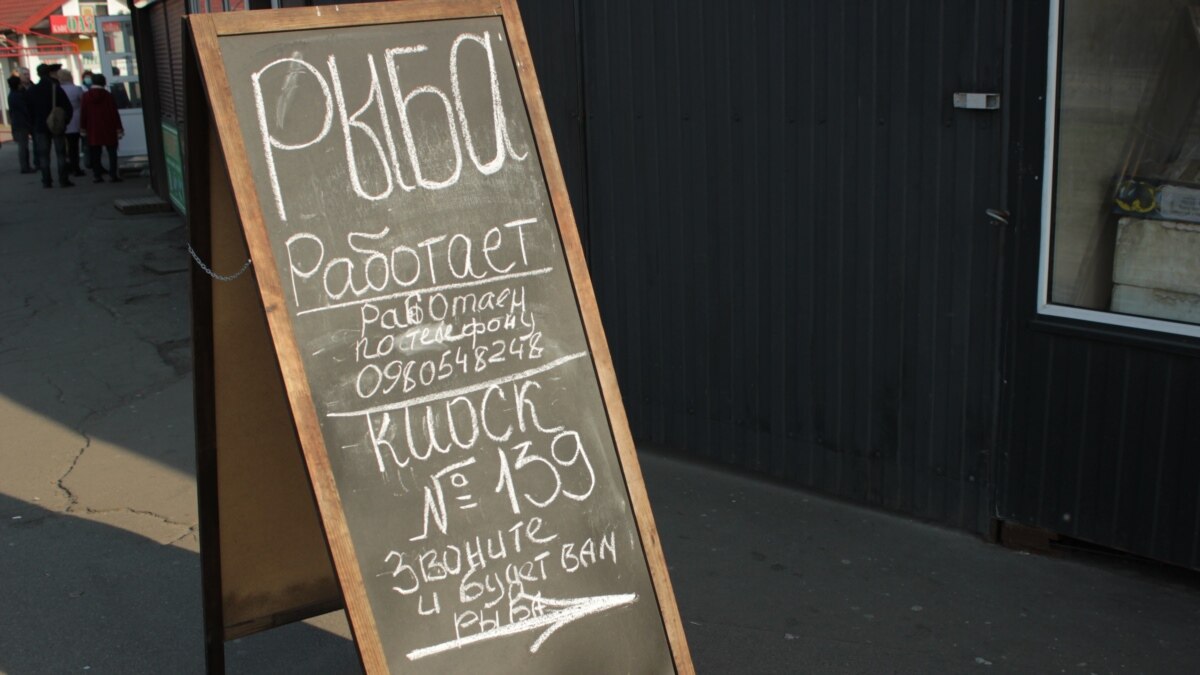 Рыба
Работает
Работаем
по телефону
0980548248
Киоск
№ 139
Звоните
и будет вам
рыба